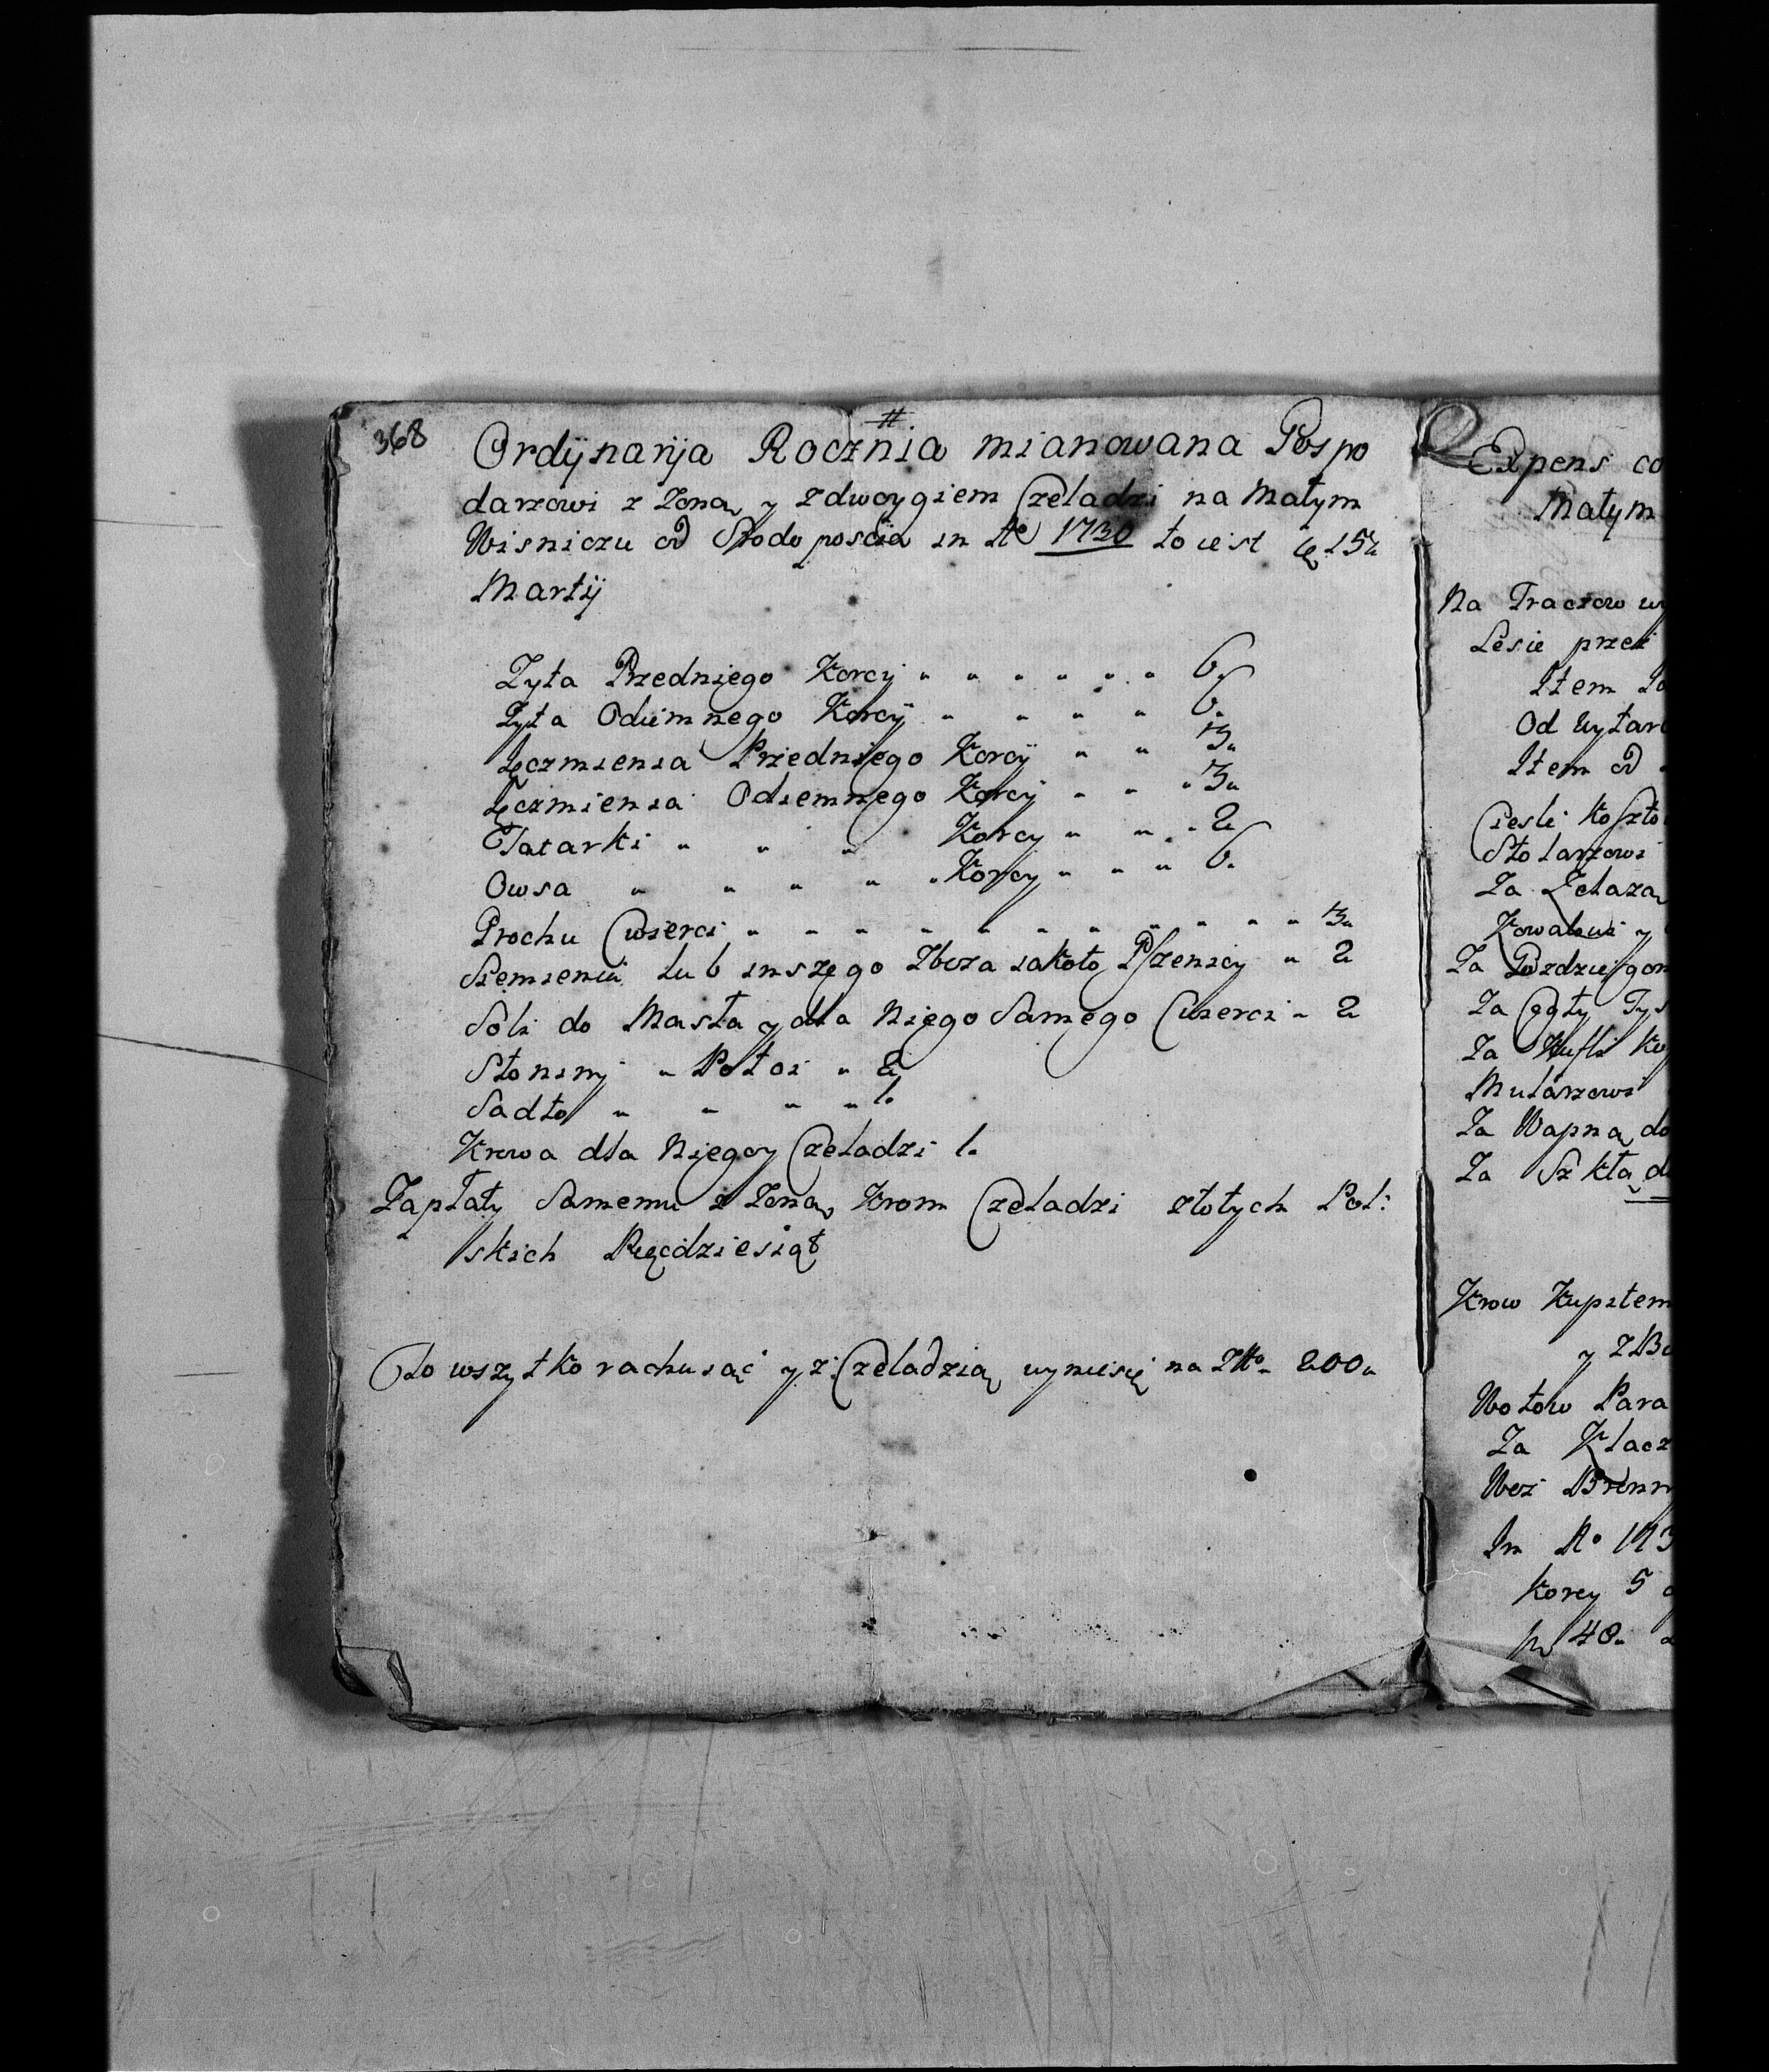 368
#
Ordÿnarÿa Rocznia mianowana Gospo
darzowi z Zoną y zdwoygiem Czeladzi na Małym
Wisniczu od Srodo poscia in Aō 1730 to iest
Martÿ
Zyta Przedniego Korcy 6.
Zyta Odiimnego Korcÿ 6.
Ięczmienia Przedniego Korcÿ 3.
Ięczmienia Odiemnego Korcÿ 3.
Tatarki Korcy 2
Owsa Korcy 6.
Grochu Cwierci 3.
Siemienia lub inszego Zboza iakoto Pszenicy 2
Soli do Masła y dla Niego Samego Cwierci 2
Słoniny Połci 2
Sadło 1.
Krowa dla Niego y Czeladzi 1.
Zapłaty Samemu z Zoną, Krom Czeladzi złotych Pol:
skich Pięcdziesiąt
To wszytko rachuiąc y z Czeladzią wyniesie na Złło 200.
Expens co
Małym
Na Traczow wy
Lesie przez
Item Za
Od wytar
Item od
Ciesli Koszto
Stolarzowi
Za Zelaza
Kowalowi y
Za Gozdzie gon
Za Cegły Tys
Za Kufli
Mularzowi
Za Wapna do
Za Szkła d
Krow Kupiłem
y z Bu
Wołow Para
Za Klacz
Woz
In Aō 173
Korcy 5
po 48.